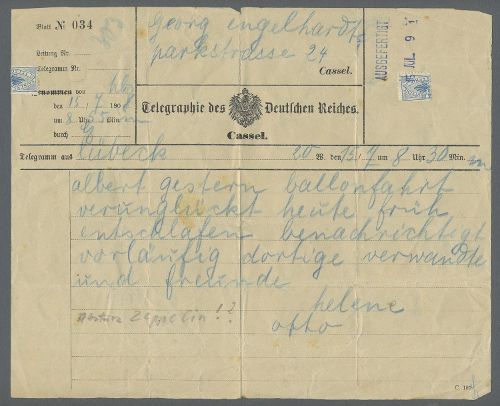 Blatt № 034
georg engelhardt
parkstrasse 24
Leitung Nr.
Telegramm Nr.
Cassel.
AUSGEFERTIGT
Aufgenommen von hbg
den 15/7 190
um 8 Uhr 55 Min.
durch
Telegraphie des Deutschen Reiches.
Cassel.
Telegramm aus Lübeck 20 W. den 15/7 um 8 Uhr 30 Min.
albert gestern ballonfahrt
verunglückt heute früh
entschlafen benachrichtigt
vorläufig dortige verwandte
und freunde
helene
otto
Absturz Zeppelin!?
C. 187